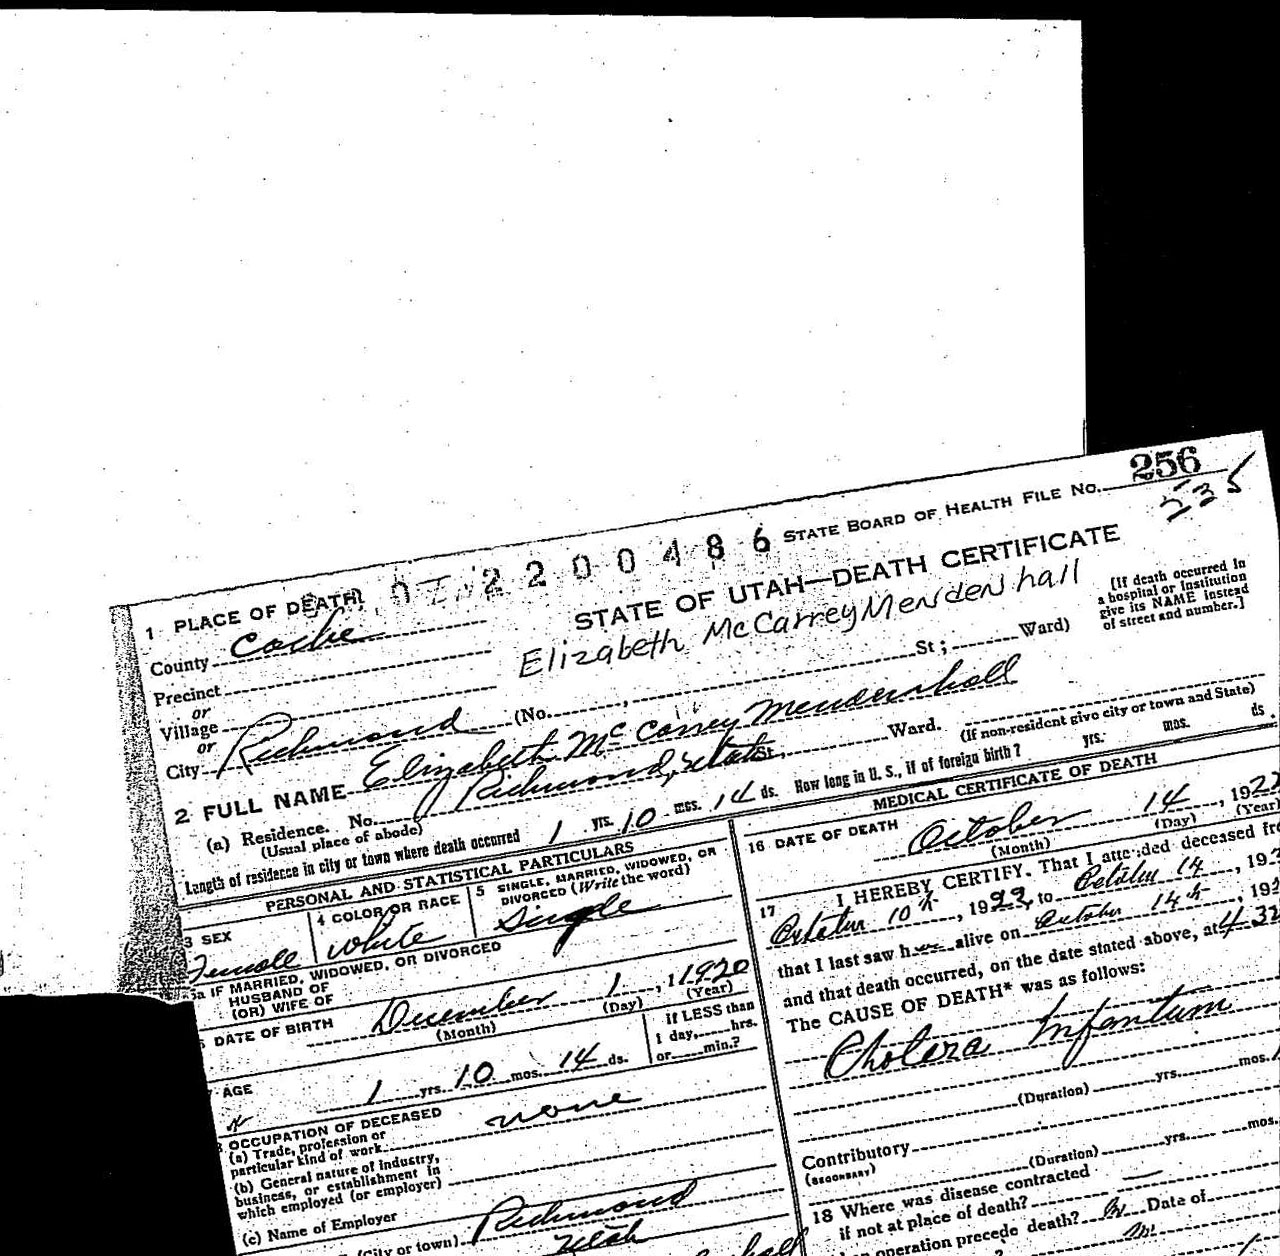 STATE BOARD OF HEALTH FILE No. 256
535
2200486
1 PLACE OF DEATH
STATE OF UTAH—DEATH CERTIFICATE
County Cache
Elizabeth McCarrey Mendenhall
[If death occurred in
a hospital or institution
give its NAME instead
of street and number.]
Precinct
or
Village (No. St; Ward)
or
City Richmond
2 FULL NAME Elizabeth Mc Carrey Mendenhall
(a) Residence. No. Richmond, Utah St., Ward.
(Usual place of abode) (If non-resident give city or town and State)
Length of residence in city or town where death occurred 1 yrs. 10 mos. 14 ds. How long in U. S., if of foreign birth? yrs. mos. ds.
PERSONAL AND STATISTICAL PARTICULARS
3 SEX
Female
4 COLOR OR RACE
White
5 SINGLE, MARRIED, WIDOWED, OR
DIVORCED (Write the word)
Single
5a IF MARRIED, WIDOWED, OR DIVORCED
HUSBAND OF
(OR) WIFE OF
DATE OF BIRTH December 1, 1920
(Month) (Day) (Year)
AGE
1 yrs. 10 mos. 14 ds.
If LESS than
1 day, hrs.
or min.?
OCCUPATION OF DECEASED
(a) Trade, profession or
particular kind of work none
(b) General nature of industry,
business, or establishment in
which employed (or employer)
(c) Name of Employer
(City or town) Richmond
Utah
MEDICAL CERTIFICATE OF DEATH
16 DATE OF DEATH
October 14, 192
(Month) (Day) (Year)
17 I HEREBY CERTIFY, That I attended deceased
October 10th, 1922, to October 14, 192
that I last saw her alive on October 14th, 192
and that death occurred, on the date stated above, at 4
The CAUSE OF DEATH* was as follows:
Cholera Infantum
(Duration) yrs. mos.
Contributory
(SECONDARY)
(Duration) yrs. mos.
18 Where was disease contracted
if not at place of death?
operation precede death? Date of